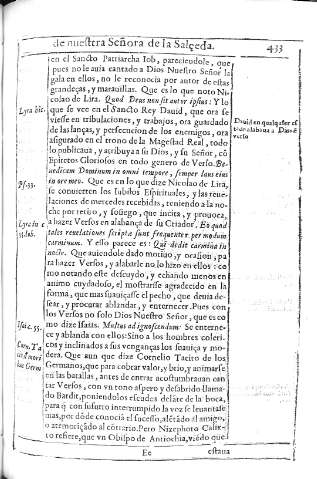 de nuestra Señora de la Salçeda. 433
en el Sancto Patriarcha Iob, pareciendole, que
pues no le auia cantado a Dios Nuestro Señor la
gala en ellos, no le reconocia por autor de estas
grandeças, y marauillas. Que es lo que noto Ni-
colao de Lira. Quod Deus non sit autor ipsius: Y lo
que se vee en el Sancto Rey Dauid, que ora se
viesse en tribulaciones, y trabajos, ora guardado
de las lanças, y persecucion de los enemigos, ora
asegurado en el trono de la Magestad Real, todo
lo publicaua, y atribuya a su Dios, y su Señor, cõ
Epitetos Gloriosos en todo genero de Verso. Be-
nedicam Dominum in omni tempore, semper laus eius
in ore meo. Que es en lo que dize Nicolao de Lira,
se conuierten los Iubilos Espirituales, y las reue-
laciones de mercedes recebidas, teniendo a la no-
che por retiro, y sosiego, que incita, y prouoca,
a hazer Versos en alabança de su Criador. Eo quod
tales reuelationes scripta sunt frequenter per modum
carminum. Y ello parece es: Qui dedit carmina in
nocte. Que auiendole dado motiuo, y ocasion, pa
ra hazer Versos, y alabarle no lo hazo en ellos: co
mo notando este descuydo, y echando menos en
animo cuydadoso, el mostrarse agradecido en la
forma, que mas suauiçasse el pecho, que demia de-
sear, y procurar ablandar, y enternecer. Pues con
los Versos no solo Dios Nuestro Señor, que es co
mo dize Isaias. Multus ad ignoscendum: Se enterne-
ce y ablanda con ellos: Sino a los hombres coleri-
cos y inclinados a sus venganças los suauiça y mo-
dera. Que aun que dize Cornelio Tacito de los
Germanos, que para cobrar valor, y brio, y animarse
en las batallas, antes de entrar acostumbrauan can
tar Versos, con vn tono aspero y desabrido llama-
do Bardit, poniendolos escudos delãte de la boca,
para q̃ con susurro interrumpido la voz se leuantasse
mas, por dõde conocia el sucesso, alẽtãdo al amigo,
o atemoriçãdo al cõtrario. Pero Nizephoro Calix-
to refiere, que vn Obispo de Antiochia, viẽdo que
Ee estaua
Lyra hic.
Ps. 33.
Isai. c. 55.
Dauid en qualquier es